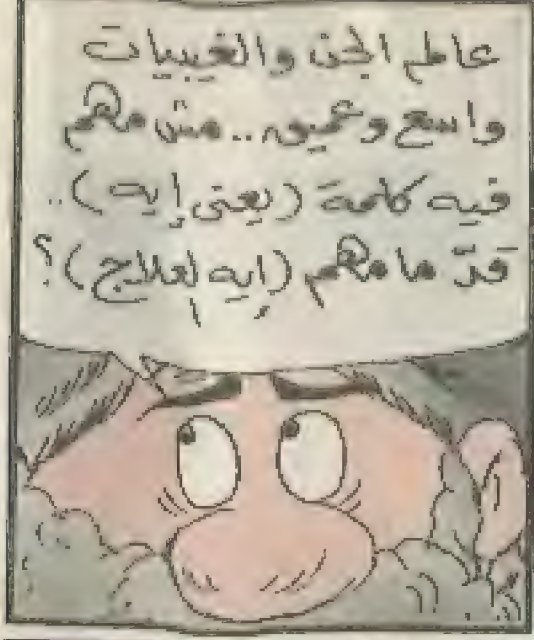 عالم الجن والغيبيات
واسع وعميق.. مش مهم
فيه كلمة (يعنى إيه)..
قدّ ما مهم (إيه لعلاج)؟